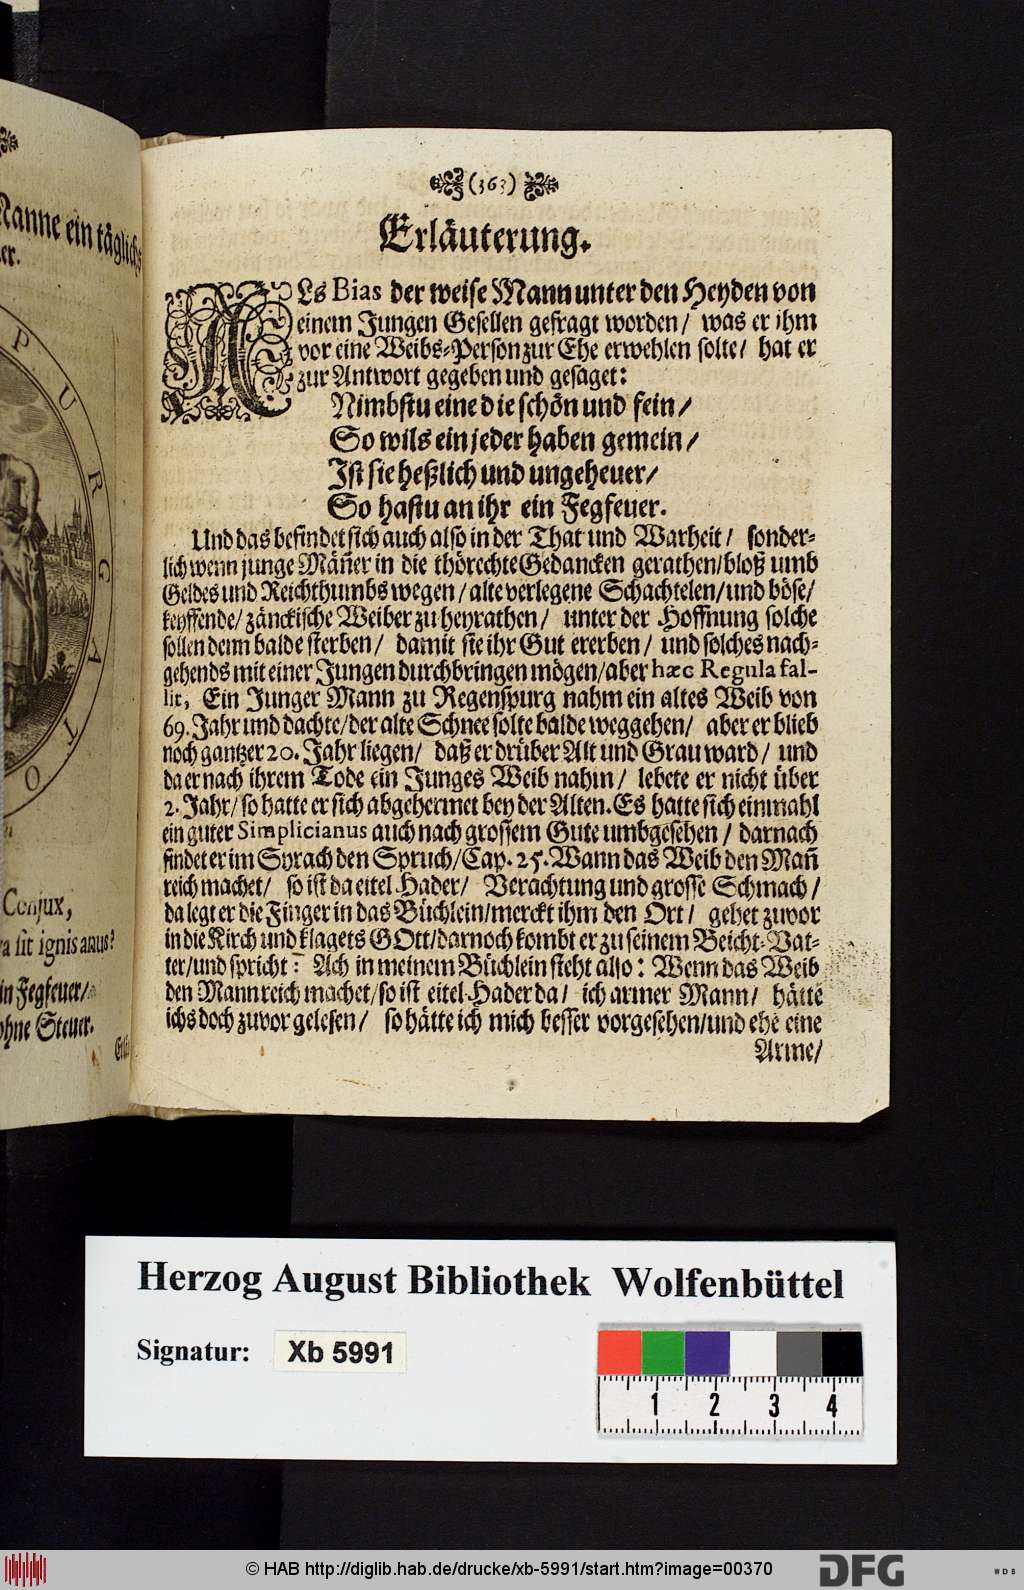 Manne ein täglichs
er.
PURGATO
Conjux,
sit ignis anus?
in Fegfeuer/
ohne Steur.
(363)
Erläuterung.
ALs Bias der weise Mann unter den Heyden von
einem Jungen Gesellen gefragt worden/ was er ihm
vor eine Weibs-Person zur Ehe erwehlen solte/ hat er
zur Antwort gegeben und gesaget:
Nimbstu eine die schön und fein/
So wils ein jeder haben gemein/
Ist sie heßlich und ungeheuer/
So hastu an ihr ein Fegfeuer.
Und das befindet sich auch also in der That und Warheit/ sonder-
lich wenn junge Mäñer in die thörechte Gedancken gerathen/bloß umb
Geldes und Reichthumbs wegen/alte verlegene Schachtelen/und böse/
keyffende/zänckische Weiber zu heyrathen/ unter der Hoffnung solche
sollen denn balde sterben/ damit sie ihr Gut ererben/ und solches nach-
gehends mit einer Jungen durchbringen mögen/aber hæc Regula fal-
lit, Ein Junger Mann zu Regenspurg nahm ein altes Weib von
69. Jahr und dachte/der alte Schnee solte balde weggehen/ aber er blieb
noch gantzer 20. Jahr liegen/ daß er drüber Alt und Grau ward/ und
da er nach ihrem Tode ein Junges Weib nahm/ lebete er nicht über
2. Jahr/so hatte er sich abgehermet bey der Alten. Es hatte sich einmahl
ein guter Simplicianus auch nach grossem Gute umbgesehen/ darnach
findet er im Syrach den Spruch/Cap. 25. Wann das Weib den Mañ
reich machet/ so ist da eitel Hader/ Verachtung und grosse Schmach/
da legt er die Finger in das Büchlein/merckt ihm den Ort/ gehet zuvor
in die Kirch und klagets GOtt/darnoch kombt er zu seinem Beicht-Vat-
ter/und spricht: Ach in meinem Büchlein steht also: Wenn das Weib
den Mann reich machet/so ist eitel Hader da/ ich armer Mann/ hätte
ichs doch zuvor gelesen/ so hätte ich mich besser vorgesehen/und ehe eine
Arme/
Herzog August Bibliothek Wolfenbüttel
Signatur: Xb 5991
1 2 3 4
© HAB http://diglib.hab.de/drucke/xb-5991/start.htm?image=00370
DFG
WDB